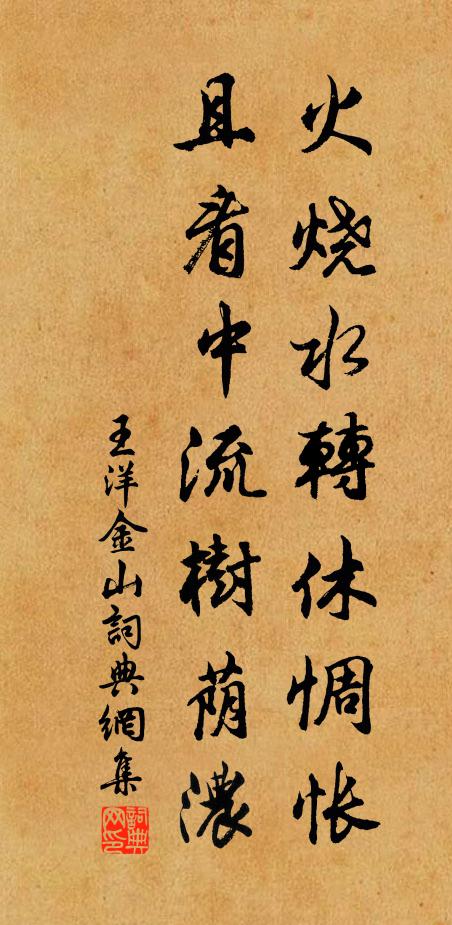 火烧水轉休惆怅
且看中流樹荫濃
王洋金山詞典網集
詞典网印